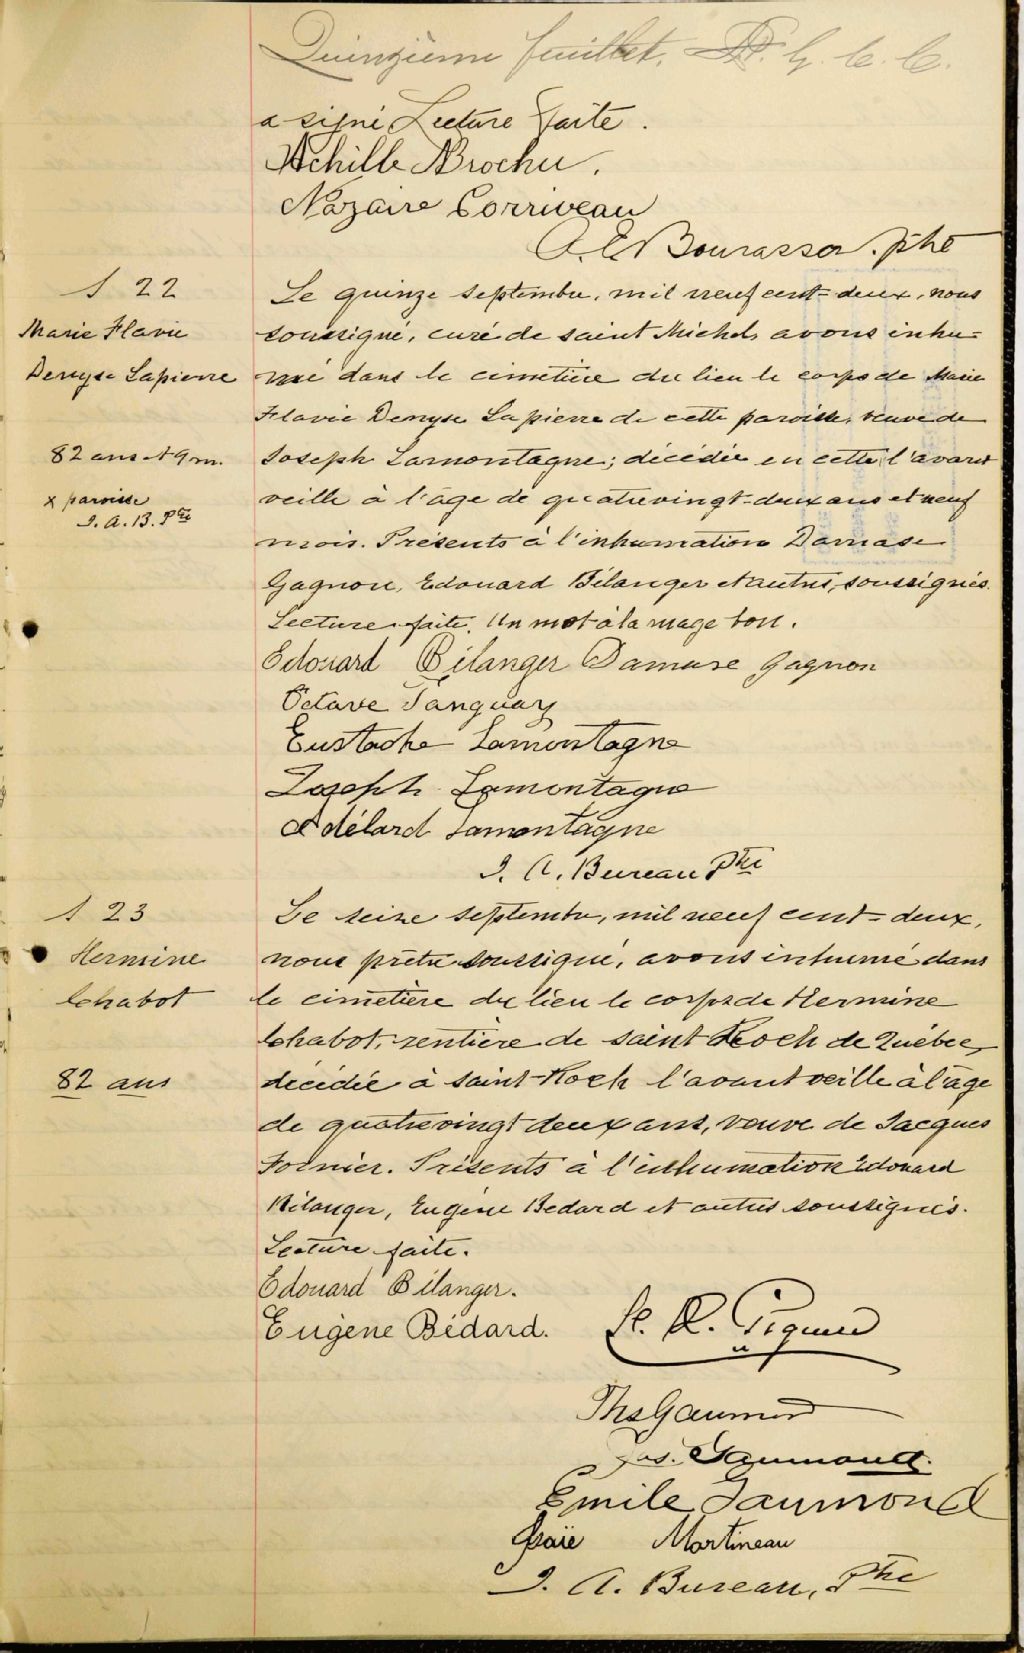 Quinzième feuillet. P. G. C. C.
a signé Lecture faite.
Achille Brochu.
Nazaire Corriveau
A. E. Bourassa. ptre
S 22
Marie Flavie
Denyse Lapierre
82 ans et 9 m.
x paroisse
J. A. B. Ptre
Le quinze septembre, mil neuf cent-deux, nous
soussigné, curé de saint Michel, avons inhu-
mé dans le cimetière du lieu le corps de Marie
Flavie Denyse Lapierre de cette paroisse, veuve de
Joseph Lamontagne; décédée en cette l'avant
veille à l'âge de quatrevingt-deux ans et neuf
mois. Présents à l'inhumation Damase
Gagnon, Edouard Bélanger et autres, soussignés.
Lecture faite. Un mot à la mage bon.
Edouard Bélanger Damase Gagnon
Octave Tanguay
Eustache Lamontagne
Joseph Lamontagne
Adélard Lamontagne
J. A. Bureau Ptre
S 23
Hermine
Chabot
82 ans
Le seize septembre, mil neuf cent-deux,
nous prêtre soussigné, avons inhumé dans
le cimetière du lieu le corps de Hermine
Chabot, rentière de saint Roch de Québec,
décédée à saint-Roch l'avant veille à l'âge
de quatrevingt deux ans, veuve de Jacques
Fornier. Présents à l'inhumation Edouard
Bélanger, Eugène Bedard et autres soussignés.
Lecture faite.
Edouard Bélanger.
Eugène Bédard.
Ths Gaumond
Jos. Gaumond.
Emile Gaumond
Isaïe Martineau
J. A. Bureau, Ptre